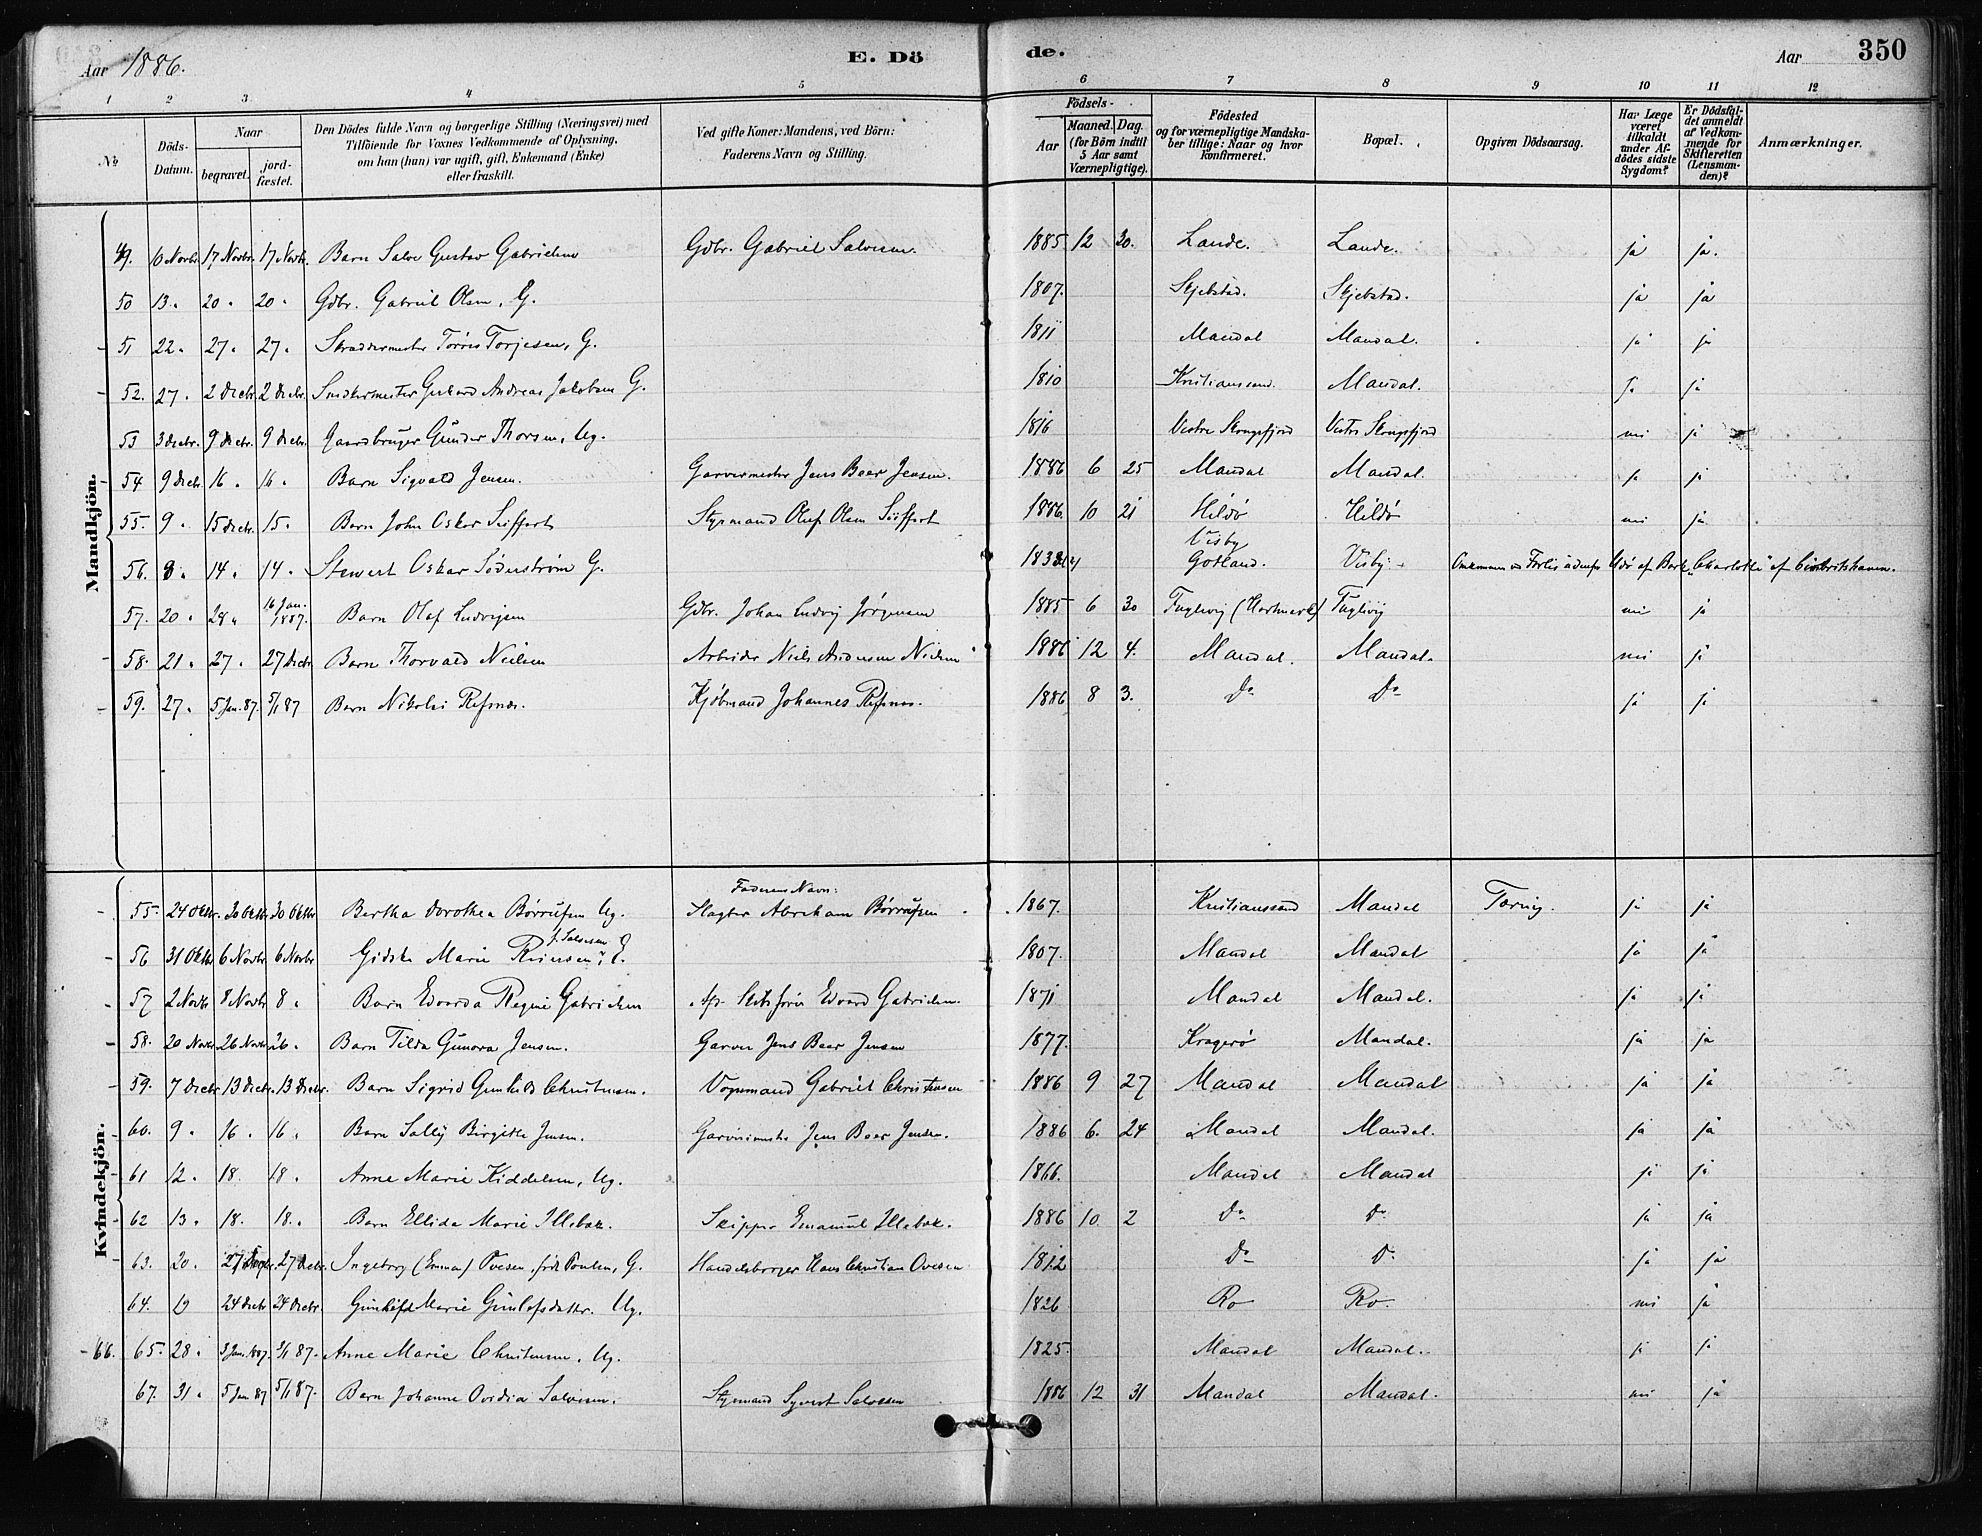 Aar 1886. E. Dö de. Aar 350
1 2 3 4 5 6 7 8 9 10 11 12
No
Döds-Datum.
Naar
begravet. jord-fæstet.
Den Dödes fulde Navn og borgerlige Stilling (Næringsvei) med
Tilföiende for Voxnes Vedkommende af Oplysning,
om han (hun) var ugift, gift, Enkemand (Enke)
eller fraskilt.
Ved gifte Koner: Mandens, ved Börn:
Faderens Navn og Stilling.
Födsels-
Aar Maaned. Dag.
(for Börn indtil
5 Aar samt
Værnepligtige).
Födested
og for værnepligtige Mandska-
ber tillige: Naar og hvor
konfirmeret.
Bopæl.
Opgiven Dödsaarsag.
Har Læge
været
tilkaldt
under Af-
dödes sidste
Sygdom?
Er Dödsfal-
det anmeldt
af Vedkom-
mende for
Skifteretten
(Lensman-
den)?
Anmærkninger.
Mandkjön.
49. 10 Novbr. 17 Novbr. 17 Novbr. Barn Salve Gustav Gabrielsen Gdbr. Gabriel Salvesen. 1885 12 30. Lande. Lande. ja ja.
50 13. " 20 " 20 " Gdbr. Gabriel Olsen, G. 1807. Skjebstad. Skjebstad. ja ja
51 22. " 27. " 27. " Skræddermester Tørres Torjesen, G. 1811 Mandal Mandal. ja ja
52. 27. " 2 Decbr. 2 Decbr. Snedkermester Gerhard Andreas Jakobsen G. 1810 Kristianssand. Mandal. ja ja
53 3 Decbr. 9 Decbr. 9 Decbr. Gaardbruger Gunder Thorsen, Ug. 1816 Vestre Skougsfjord Vestre Skougsfjord nei ja
54 9 Decbr. 16 " 16 " Barn Sigvald Jensen. Garvermester Jens Beer Jensen. 1886 6 25 Mandal Mandal. ja ja
55. 9 " 15 Decbr. 15. " Barn John Oskar Seiffert Styrmand Oluf Olsen Seiffert 1886. 10 21 Hildø Hildø nei ja
56. 8 " 14 " 14 " Stewert Oskar Söderström G. Visby Gotland. Visby. Omkommen ved Forlis af Bark "Charlotte" af
57. 20 " 29 " 16 Jan. 1887. Barn Olaf Ludvigsen Gdbr. Johan Ludvig Jørgensen 1885 6 30 Fuglevig (Hartmark) Fuglevig nei ja
58. 21 " 27 " 27 Decbr. Barn Thorvald Nielsen Arbeider Niels Andersen Nielsen 1886 12 4. Mandal. Mandal. nei ja
59. 27. " 5 Jan. 87. 5/1 87 Barn Nikolai Refsnæs. Kjöbmand Johannes Refsnes. 1886 8 3. Do Do ja ja
Kvindekjön.
Faderens Navn:
55. 24 Oktbr. 30 Oktbr. 30 Oktbr Bertha Dorothea Börrufsen Ug. Slagter Abraham Börrufsen 1867. Kristianssand Mandal Tæring. ja ja
f. Salvesen
56 31 Oktbr 6 Novbr 6 Novbr Gidske Marie Reiersen, E. 1807. Mandal Mandal ja ja
57 2 Novbr 8 Novbr 8 " Barn Edvarda Regine Gabrielsen Afd. Skibsfører Edvard Gabrielsen. 1871 Mandal Mandal. ja ja
58. 20 Novbr 26 Novbr 26. " Barn Tilda Gunora Jensen. Garver Jens Beer Jensen 1877. Kragerø Mandal. ja ja
59. 7 Decbr 13 Decbr. 13 Decbr. Barn Sigrid Gunhild Christensen. Vognmand Gabriel Christensen 1886 9 27 Mandal Mandal ja ja
60. 9 " 16 " 16 " Barn Sally Birgithe Jensen. Garvermester Jens Beer Jensen. 1886 6. 24 Mandal Mandal. ja ja
61 12 " 18. 18 " Anne Marie Kiddelsen, Ug. 1866. Mandal Mandal ja ja
62 13. " 18. 18. " Barn Ellida Marie Illebæk. Skipper Emanuel Illebæk. 1886 10 2 Do Do ja ja
63. 20. " 27 Decbr. 27 Decbr. Ingeborg (Emma) Ovesen, født Poulsen, G. Handelsborger Hans Christian Ovesen 1812 Do Do ja ja
64. 19 24 Decbr 24 Decbr. Gunhild Marie Gunlofsdatter. Ug. 1826 Ro Ro. nei ja
66. 65. 28 " 3 Jan. 1887. 3/1 87. Anne Marie Christensen, Ug. 1825. Mandal Mandal. ja ja
67. 31 " 5 Jan 87 5/1 87. Barn Johanne Ovidia Salvesen. Styrmand Syvert Salvesen 1886 12 31 Mandal Mandal. nei ja